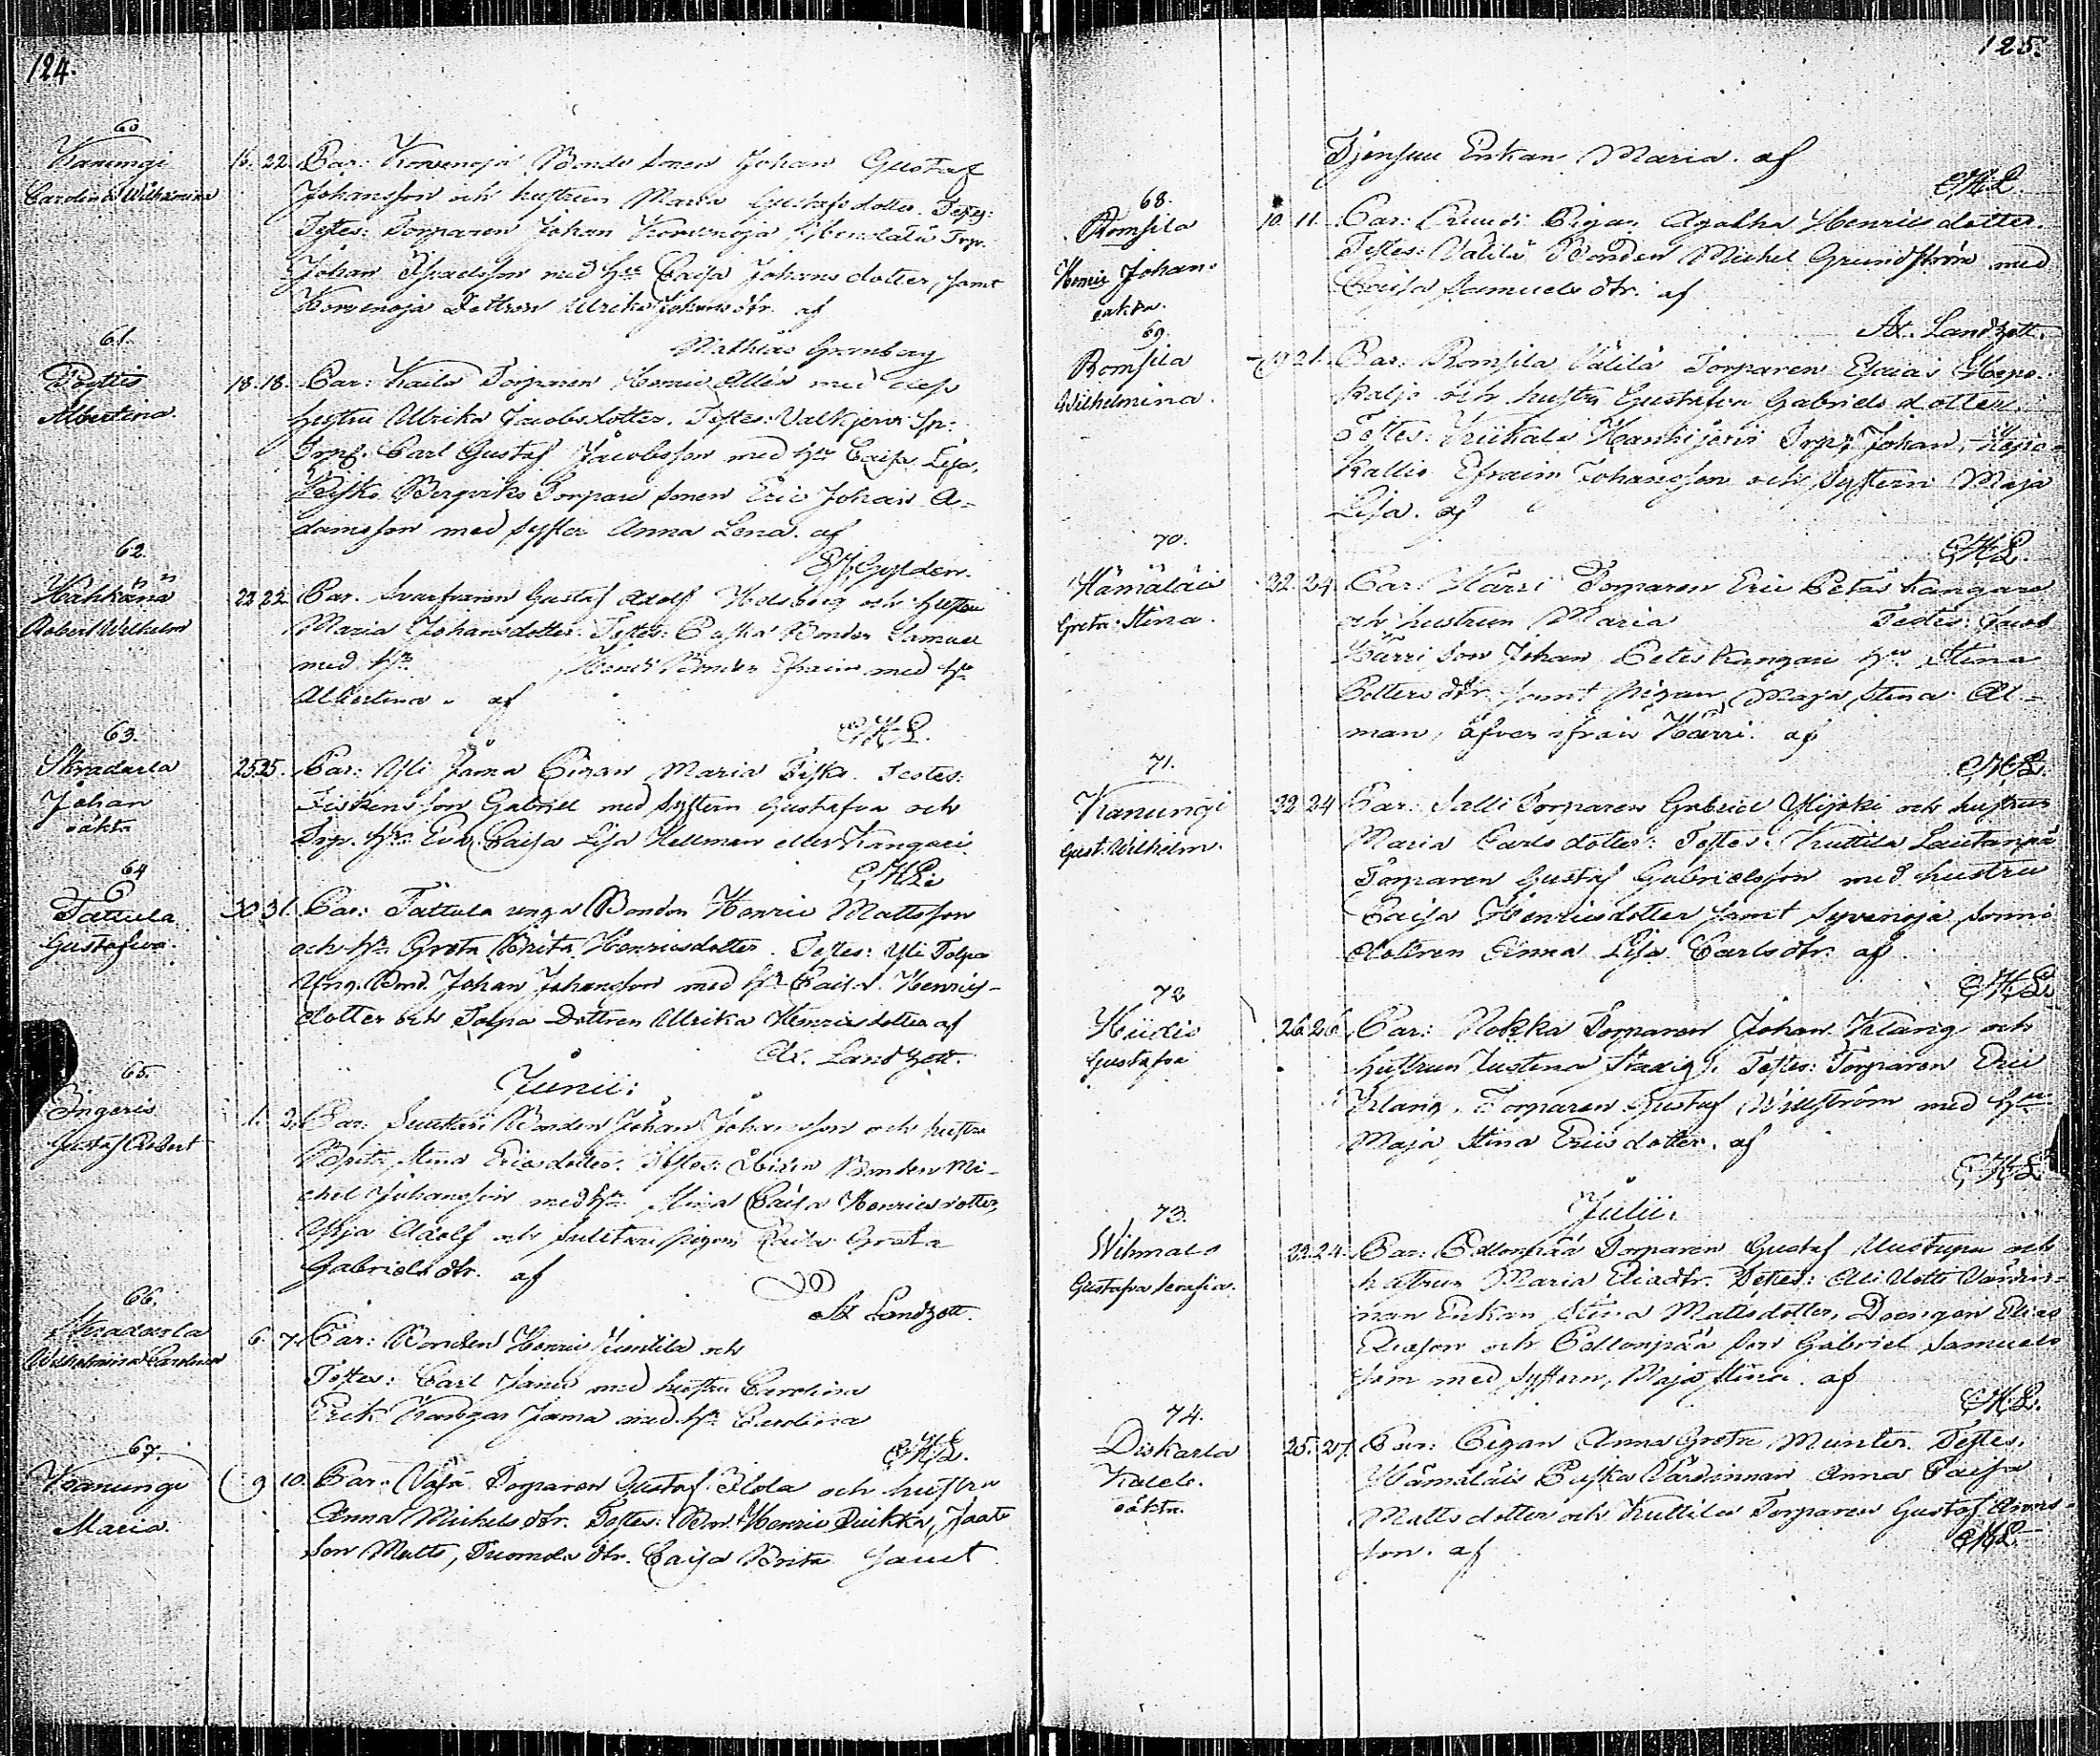 124.
60
Kanungi
Carolina Wilhelmina
16. 22. Par: Korvenoja Bonde Sonen Johan Gustaf
Johansson och hustrun Maria Gustafsdotter. Testes:
Testes: Torparen Johan Korvenoja, Torp.
Johan Israelsson med h:u Caisa Johansdotter, samt
Korvenoja Dottren Ulrika Johans dtr. af
Mathias Granberg
61.
Pöytis
Albertina
18. 18. Par: Kaila Torparen Henric med dess
hustru Ulrika Jacobsdotter. Testes: Valkjervi Sp:
Torp. Carl Gustaf Jacobsson med h:u Caisa Lisa,
Bergviks Torpare Sonen Eric Johan A-
damsson med syster Anna Lena. af
Gylden.
62.
Hähkänä
Robert Wilhelm
22 22. Par. Svarfvaren Gustaf Adolf och hustru
Maria Johansdotter. Testes: Bonden Samuel
med h:u Bonden Efraim med h:u
Albertina. af
GHL.
63.
Skradarla
Johan
oäkta
25 25. Par: Yli Jama Pigan Maria Testes:
son Gabriel med systern Gustafva och
Torp. h:u Eva Caisa Lisa Hellman eller Kangari.
GHL.
64
Tattula
Gustafva.
30 31. Par: Tattula unga Bonden Henric Mattsson
och h:u Greta Brita Henricsdotter. Testes: Yli Tolpo
Ung. Bond. Johan Johansson med h:u Caisa Henrics-
dotter och Tolpo Dottren Ulrika Henricsdotter af
Ax. Landzett.
Junii:
65.
Ingeris
Gustaf Robert
1. 2. Par: Bonden Johan Johansson och hustru
Brita Stina Ericsdotter. Testes: Bonden Mi-
chel Johansson med h:u Stina Caisa Henricsdotter,
Adolf och pigan Caisa Greta
Gabriels dtr. af
Ax Landzett.
66.
Skradarla
Wilhelmina Carolina
6. 7. Par: Bonden Henric Juntila och
Testes: Carl Jama med hustru Carolina
Erik Jama med h:u Carolina
GHL.
67.
Kanungi
Maria.
9 10. Par: Torparen Gustaf Flola och hustru
Anna Michels dtr. Testes: Bon. Henric
son Matts, Tuomola dtr. Caisa Brita samt
125.
Enkan Maria. af
GHL.
68.
Romsila
Henric Johan.
oäkta.
10. 11. Par: Ruudi Pigan Agatha Henricsdotter.
Testes: Välilä Bonden Michel Grundström med
Caisa Samuels dtr. af
Ax. Landzett.
69.
Romsila
Wilhelmina.
19 21. Par: Romsila Välilä Torparen Esaias Hepo-
kaljo och hustru Gustafva Gabrielsdotter.
Testes: Krükala Torp. Johan, Hepo-
kallio Efraim Johansson och systern Maja
Lisa. af
GHL.
70.
Hämäläis
Greta Stina.
22. 24. Par: Härri Torparen Eric Petäs kangare
och hustrun Maria Testes: Jacob
Härri son Johan, Petes kangari h:u Stina
dtr. samt pigan Maja Stina Al-
man, äfven ifrån Härri. af
GHL.
71.
Kanungi
Gust. Wilhelm.
22 24 Par: Salli Torparen Gabriel Ylijoki och hustrun
Maria Carlsdotter. Testes: Kuttila Lautanpä
Torparen Gustaf Gabrielsson med hustru
Caisa Henricsdotter samt
dottren Anna Lisa Carls dtr. af
GHL
72
Hiidis
Gustafva
26 26 Par: Nokka Torparen Johan Klang och
hustrun Justina Stadig. Testes: Torparen Eric
Klang, Torparen Gustaf Willström med h:u
Maja Stina Ericsdotter. af
GHL
Julii.
73.
Vilmals
Gustafva Serafia.
22. 24. Par: Pellonpää Torparen Gustaf och
hustrun Maria Elias dtr. Testes: Värdin-
nan Enkan Stina Mattsdotter, Drengen Elias
Eliasson och Pellonpää son Gabriel Samuels
son med systern, Maja Stina. af
GHL.
74.
Diskarla
Kaleb.
oäkta.
25. 27. Par: Pigan Anna Greta Munter. Testes.
Hämäläis Värdinnan Anna Caisa
Mattsdotter och Kuttila Torparen Gustaf
son. af
GHL.